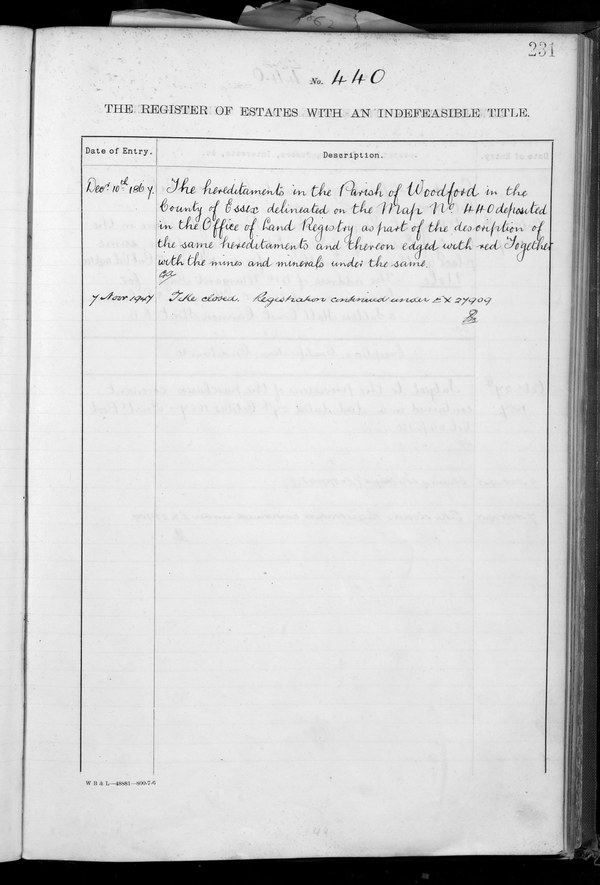 231
No. 440
THE REGISTER OF ESTATES WITH AN INDEFEASIBLE TITLE.
Date of Entry.
Description.
Decr. 10th 1867.
The hereditaments in the Parish of Woodford in the
County of Essex delineated on the Map No. 440 deposited
in the Office of Land Registry as part of the description of
the same hereditaments and thereon edged with red Together
with the mines and minerals under the same.
7 Novr 1947
Title closed. Registration continued under EX 27909
W B & L—48881—800-7-6